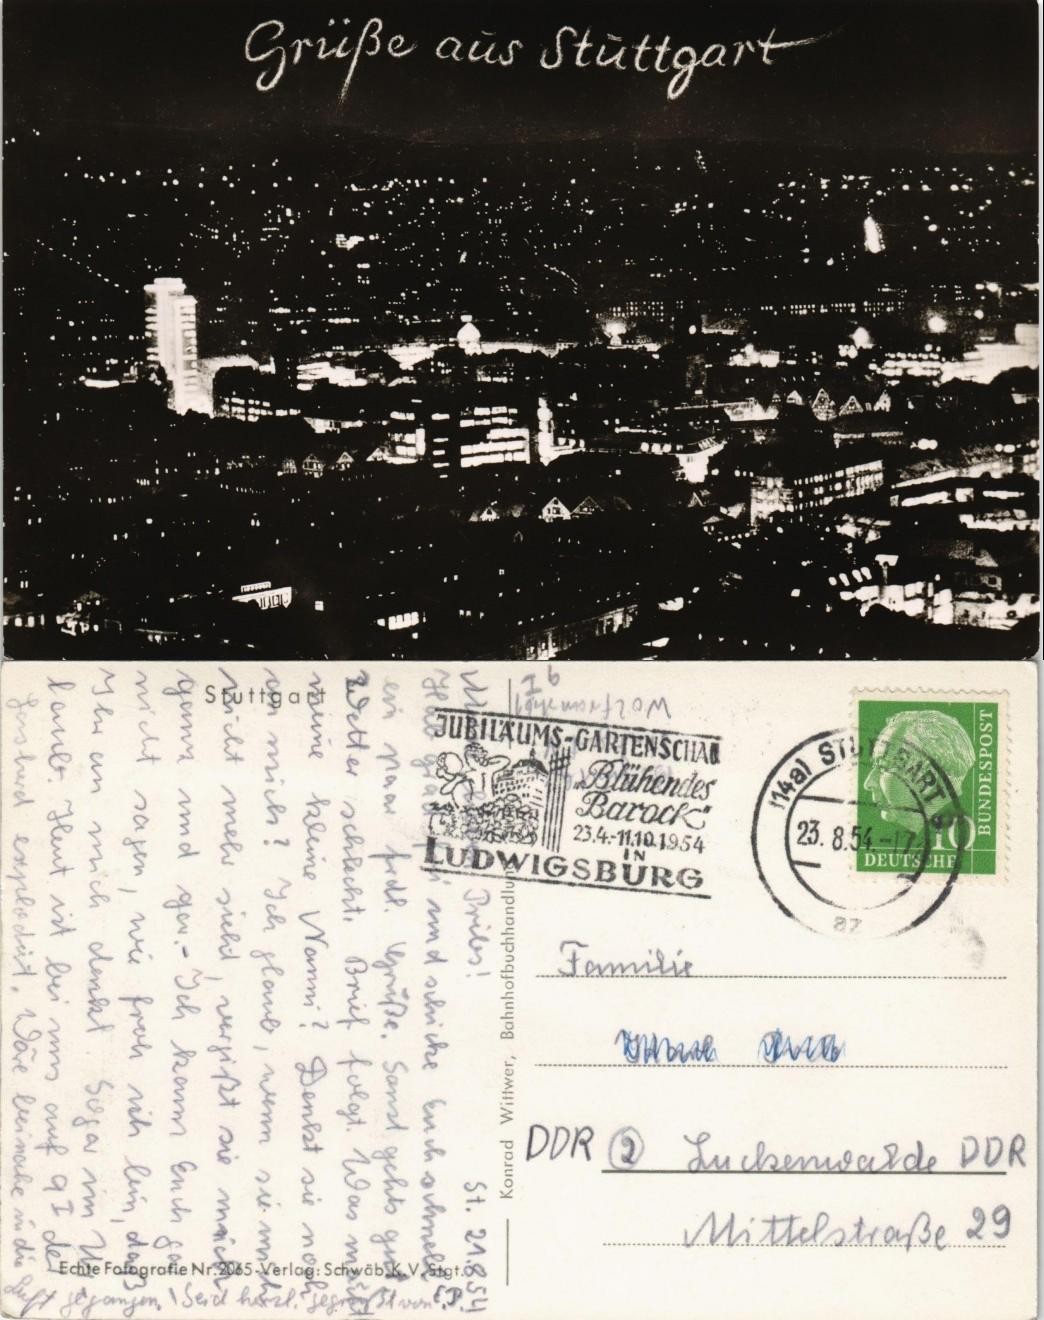 Grüße aus Stuttgart
Stuttgart
9 I
JUBILÄUMS-GARTENSCHAU
"Blühendes
Barock"
23.4.-11.10.1954
IN
LUDWIGSBURG
(14a) STUTTGART 9
23.8.54.-17
az
DEUTSCHE
BUNDESPOST
10
Familie
DDR 2 Luckenwalde DDR
Mittelstraße 29
Konrad Wittwer, Bahnhofbuchhandlung
St. 21.8.54
und schicke Euch
ein paar frdl. Grüße. Sonst gehts gut
Wetter schlecht. Brief folgt. Was macht
meine kleine Nanni? Denkt sie noch
an mich? Ich glaub, wenn sie mich
nicht mehr sieht, vergißt sie mich
ganz und gar.- Ich kann Euch gar
nicht sagen, wie froh ich bin, daß
Ihr an mich denkt
Heut ist bei uns auf 9 I der
explodiert. Wäre beinahe in die
Luft gegangen. Seid herzl. gegrüßt von
Echte Fotografie Nr. 2065 - Verlag: Schwäb. K. V. Stgt.